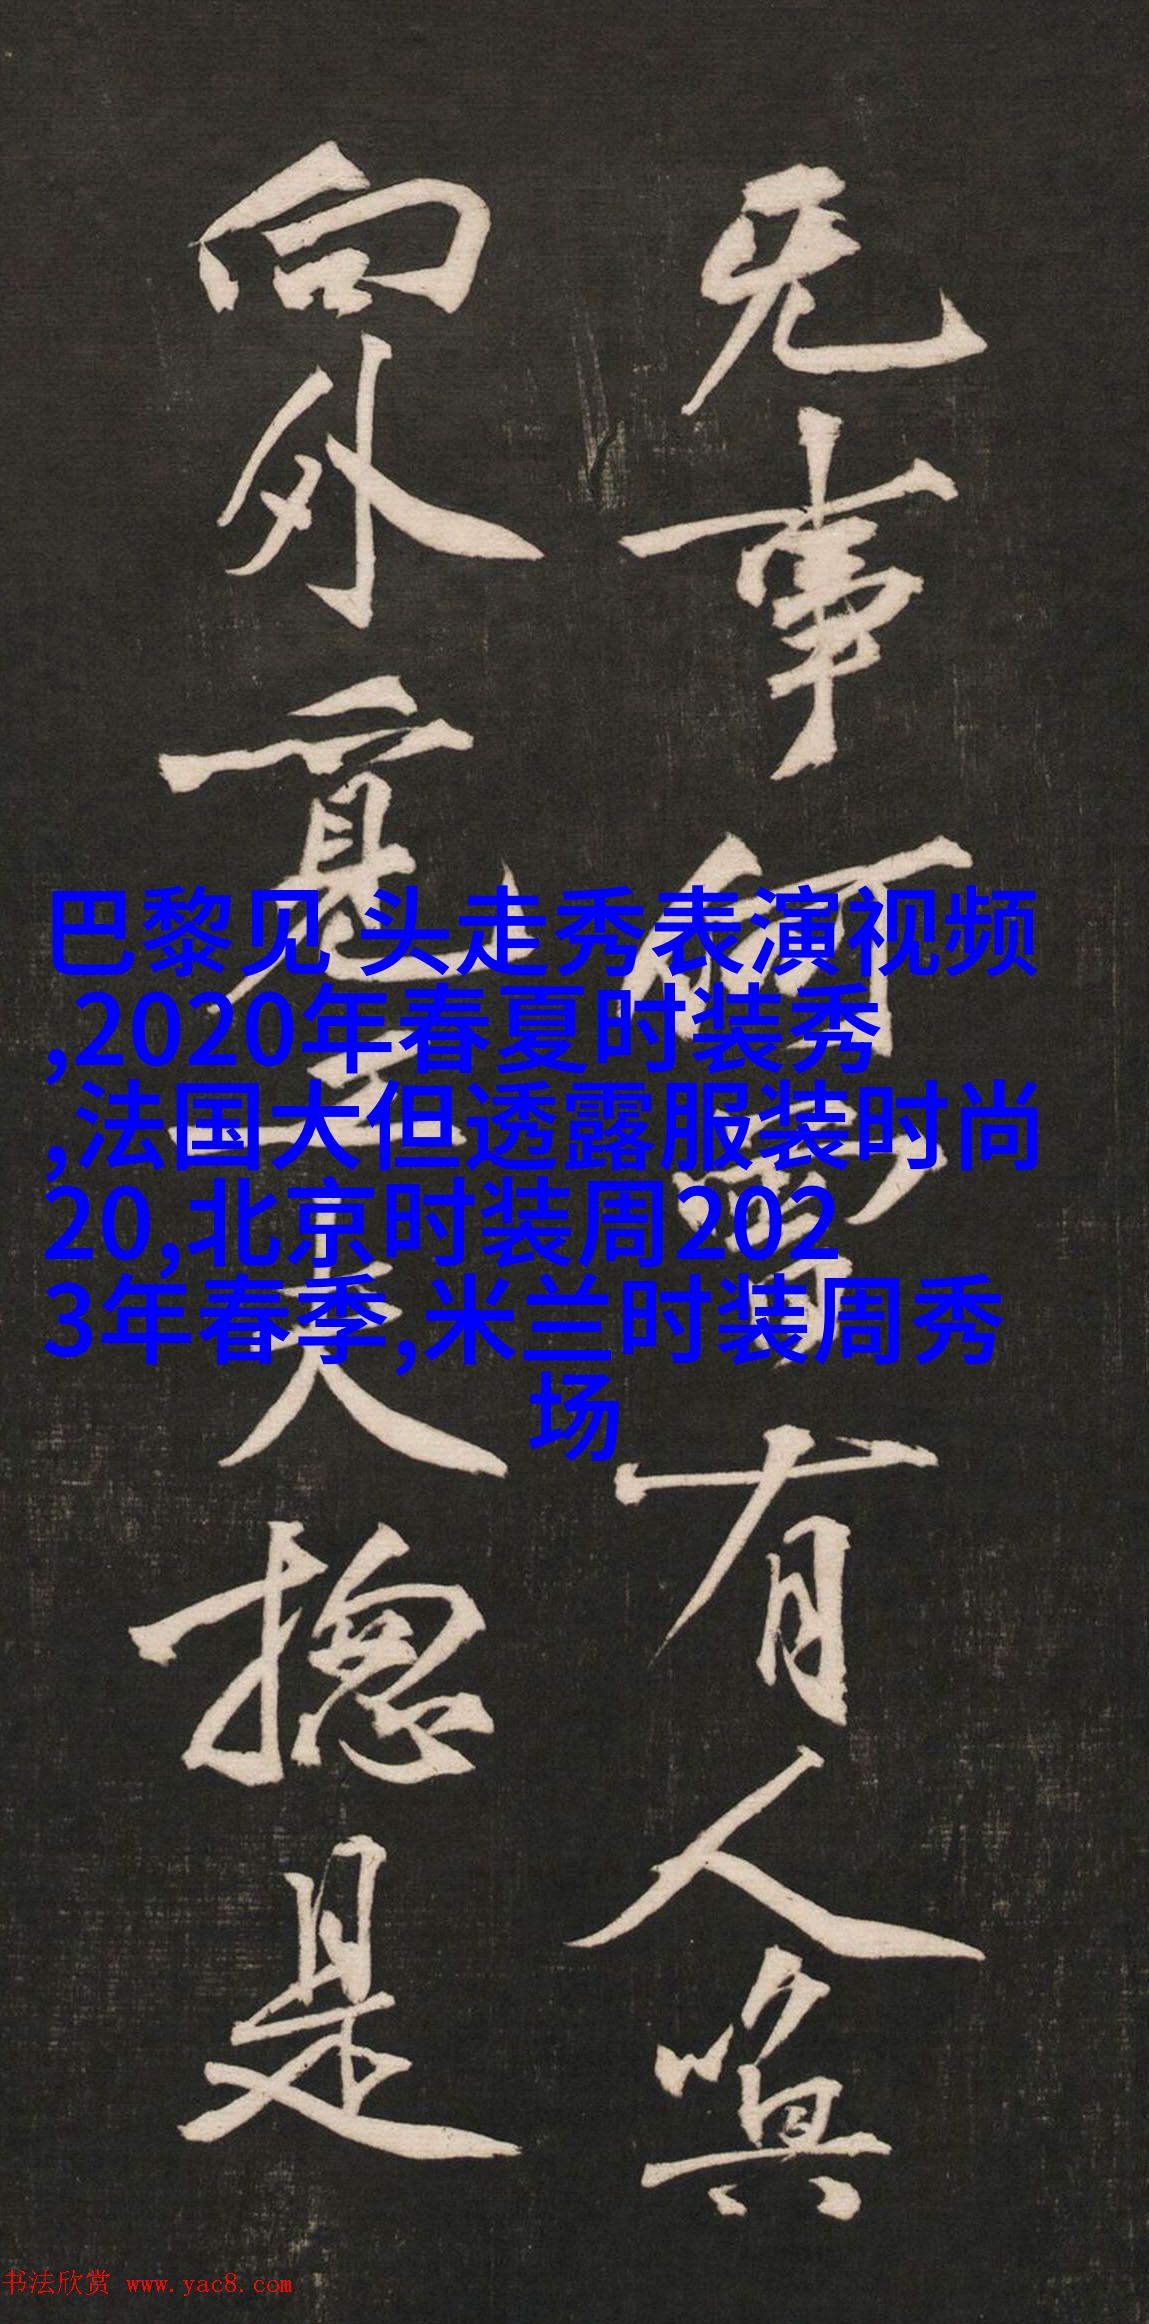 无事何曾有人
向外覔工夫揔是
巴黎见 头走秀表演视频
,2020年春夏时装秀
,法国大但透露服装时尚
20,北京时装周202
3年春季,米兰时装周秀
场
书法欣赏 www.yac8.com